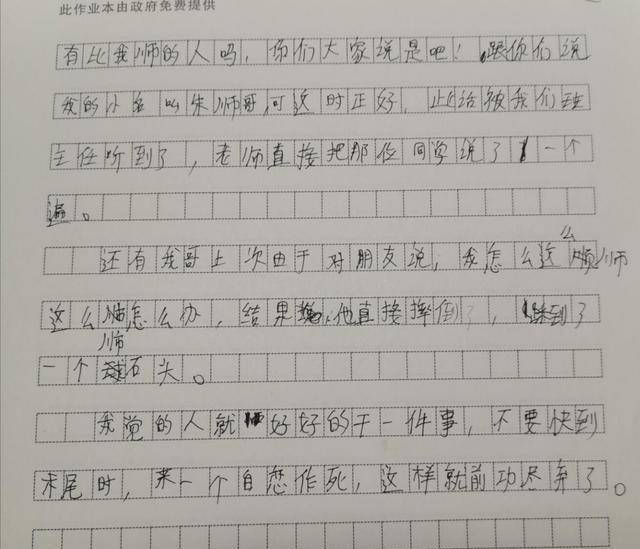 此作业本由政府免费提供
有比我师的人吗，你们大家说是吧！跟你们说
我的小名叫朱师哥，可这时正好，此话被我们班
主任听到了，老师直接把那位同学说了一个
遍。
还有我哥上次由于对朋友说，我怎么这么师
这么师怎么办，结果他直接摔倒了，踩到了
一个石头。
我觉的人就好好的干一件事，不要快到
末尾时，来一个自恋作死，这样就前功尽弃了。